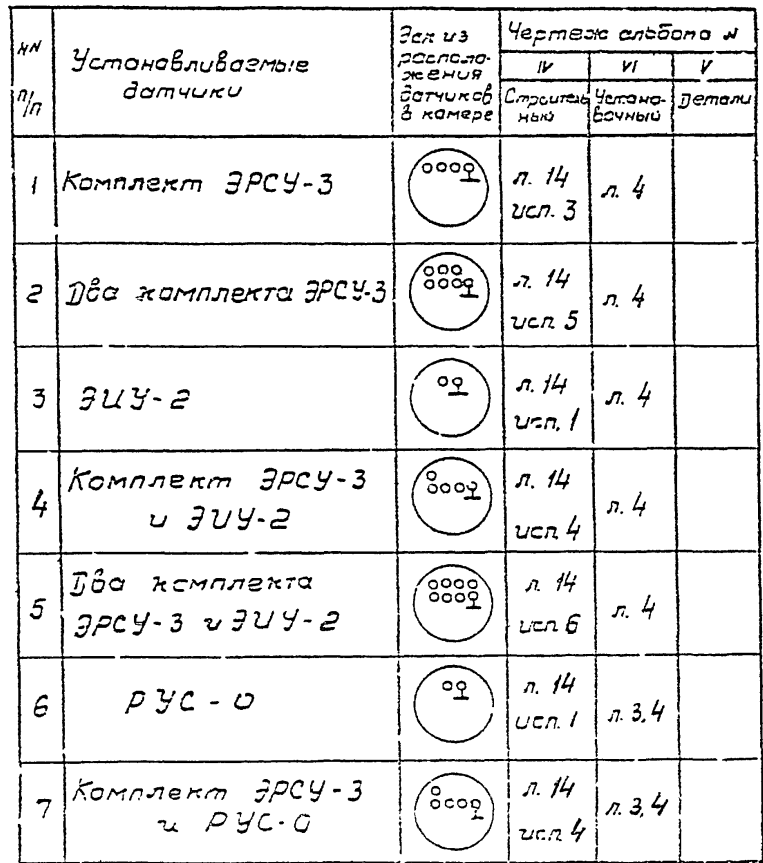 NN
п/п
Устанавливаемые
датчики
Эскиз
располо-
жения
датчиков
в камере
Чертеж альбома N
IV
VI
V
Строитель
ный
Устано-
вочный
Детали
1
Комплект ЭРСУ-3
л. 14
исп. 3
л. 4
2
Два комплекта ЭРСУ-3
л. 14
исп. 5
л. 4
3
ЭИУ-2
л. 14
исп. 1
л. 4
4
Комплект ЭРСУ-3
и ЭИУ-2
л. 14
исп. 4
л. 4
5
Два комплекта
ЭРСУ-3 и ЭИУ-2
л. 14
исп 6
л. 4
6
РУС-0
л. 14
исп. 1
л. 3,4
7
Комплект ЭРСУ-3
и РУС-0
л. 14
исп 4
л. 3,4